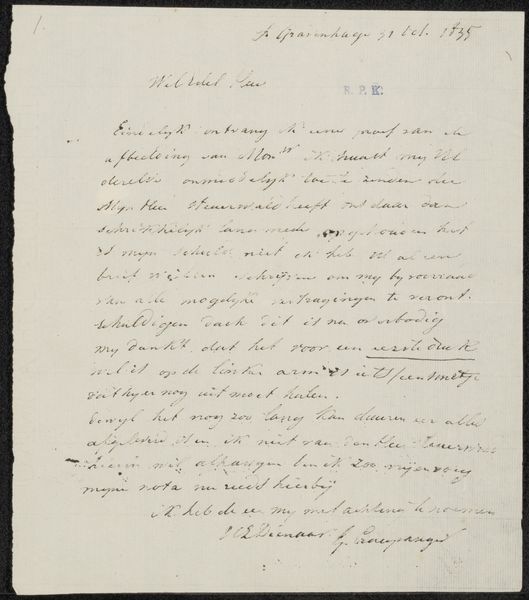 1.
s Gravenhage 31 Oct. 1835
WelEdel Heer
R. P. K.
Eindelijk ontvang ik eene proef van de
afbeelding van Mons^r ik haast my UE
dezelve onmiddelijk toe te zenden de
Myn Heer Steuerwald heeft ons daar van
schrikkelijk lang mede opgehouden het
is mijn schuld niet ik heb UE al een
brief willen schrijven om my by voorraad
van alle mogelijke vertragingen te veront
schuldigen doch dit is nu overbodig
my dunkt dat het voor een eerste druk
wel is op de linker arm is iets/een smetje
dat hy er nog uit moet halen.
dewyl het nog zoo lang kan duuren eer alles
afgeleverd is en ik niet van den Heer Steuerwald
hierin wil afhangen ben ik zoo vrij
mijne nota nu reeds hierbij
ik heb de eer my met achting te noemen
UE Dienaar